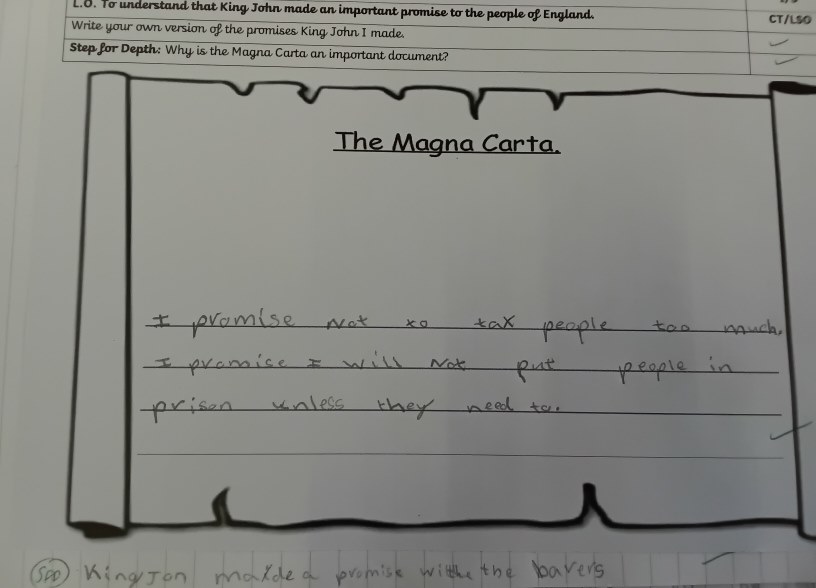 L.O. To understand that King John made an important promise to the people of England.
CT/LSO
Write your own version of the promises King John I made.
Step for Depth: Why is the Magna Carta an important document?
The Magna Carta.
I promise not to tax people too much.
I promise I will not put people in
prison unless they need to.
King Jon made a promise withe the barers